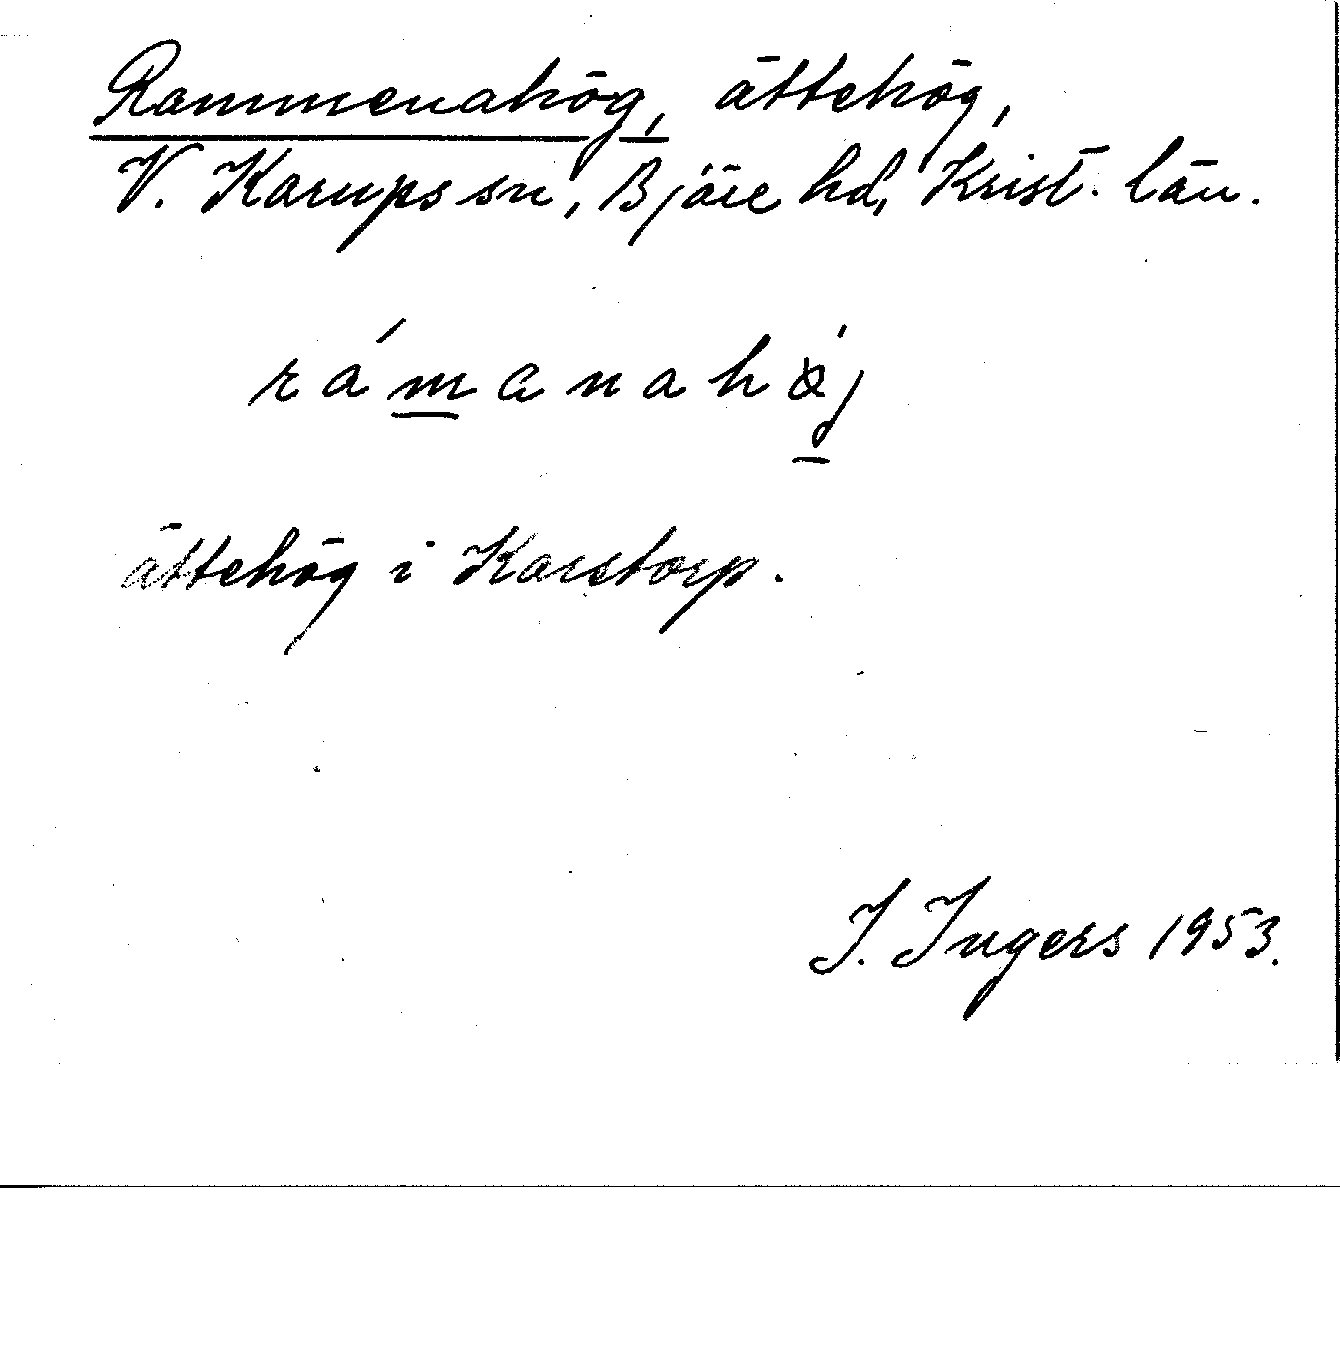 Rammenahög, ättehög,
V. Karups sn, Bjäre hd, Krist. län.
rámanahǿj
ättehög i Karstorp.
I. Ingers 1953.